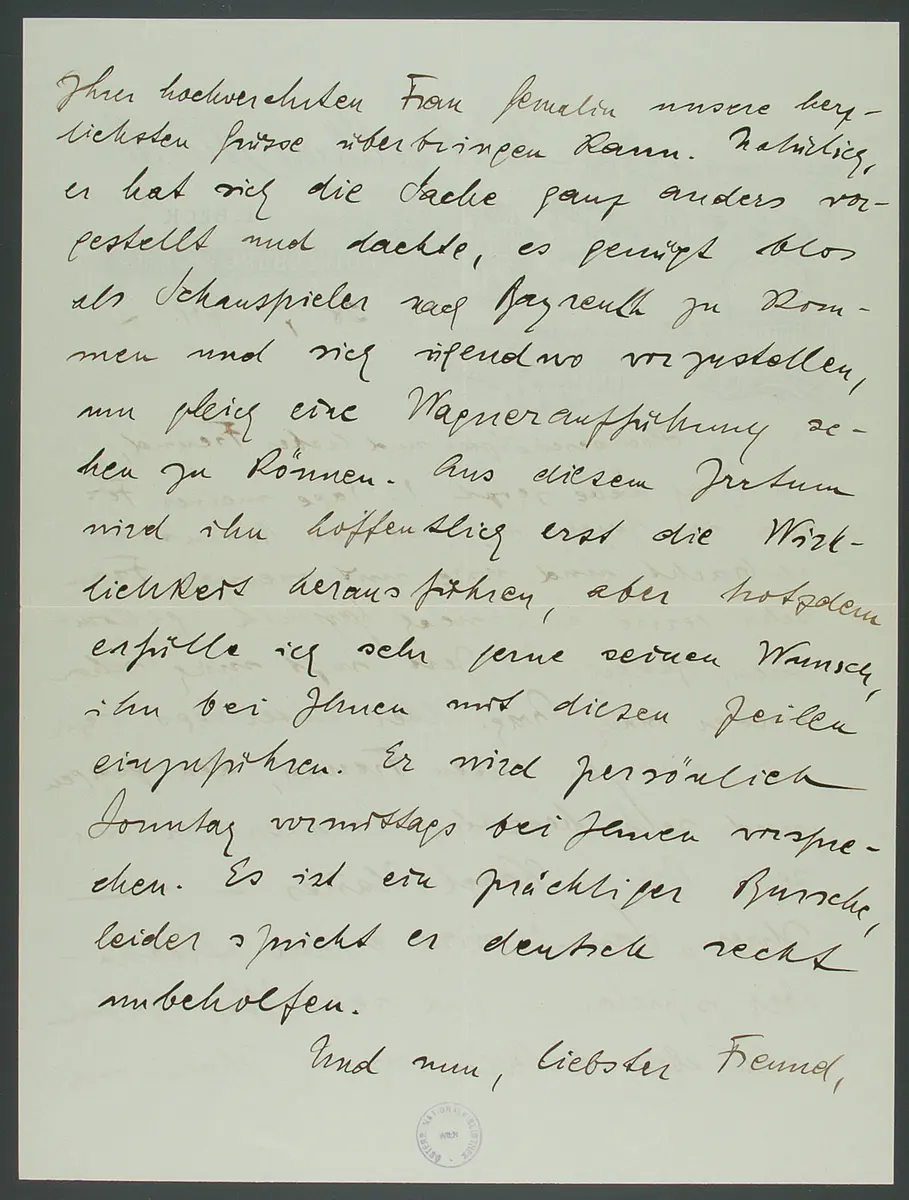 Ihrer hochverehrten Frau Gemalin unsere herz-
lichsten Grüsse überbringen kann. Natürlich,
er hat sich die Sache ganz anders vor-
gestellt und dachte, es genügt blos
als Schauspieler nach Bayreuth zu kom-
men und sich irgendwo vorzustellen,
um gleich eine Wagneraufführung se-
hen zu können. Aus diesem Irrtum
wird ihn hoffentlich erst die Wirk-
lichkeit herausführen, aber trotzdem
erfülle ich sehr gerne seinen Wunsch,
ihn bei Ihnen mit diesen Zeilen
einzuführen. Er wird persönlich
Sonntag vormittags bei Ihnen vorspre-
chen. Es ist ein prächtiger Bursche,
leider spricht er deutsch recht
unbeholfen.
Und nun, liebster Freund,
WIEN